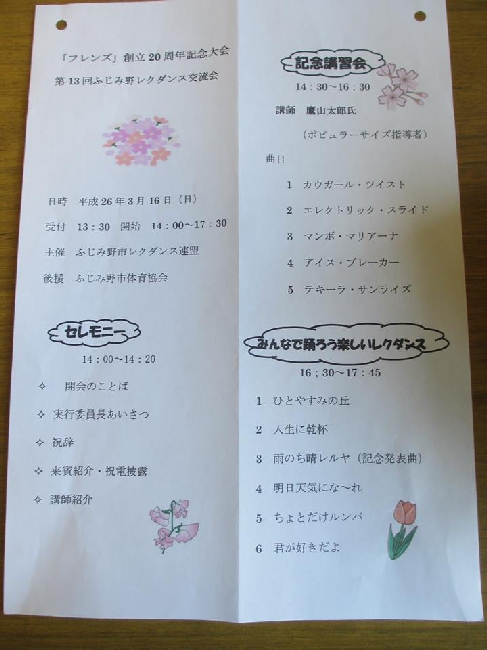 「フレンズ」創立20周年記念大会
第13回ふじみ野レクダンス交流会
日時 平成26年3月16日(日)
受付 13:30 開始 14:00~17:30
主催 ふじみ野市レクダンス連盟
後援 ふじみ野市体育協会
セレモニー
14:00~14:20
✧ 開会のことば
✧ 実行委員長あいさつ
✧ 祝辞
✧ 来賓紹介・祝電披露
✧ 講師紹介
記念講習会
14:30~16:30
講師 鷹山太郎氏
(ポピュラーサイズ指導者)
曲目
1 カウガール・ツイスト
2 エレクトリック・スライド
3 マンボ・マリアーナ
4 アイス・ブレーカー
5 テキーラ・サンライズ
みんなで踊ろう楽しいレクダンス
16:30~17:45
1 ひとやすみの丘
2 人生に乾杯
3 雨のち晴レルヤ(記念発表曲)
4 明日天気にな~れ
5 ちょとだけルンバ
6 君が好きだよ